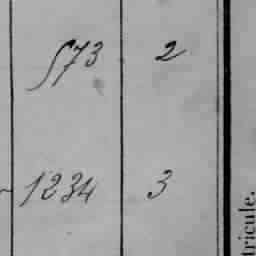 573 2
1234 3
tricule.